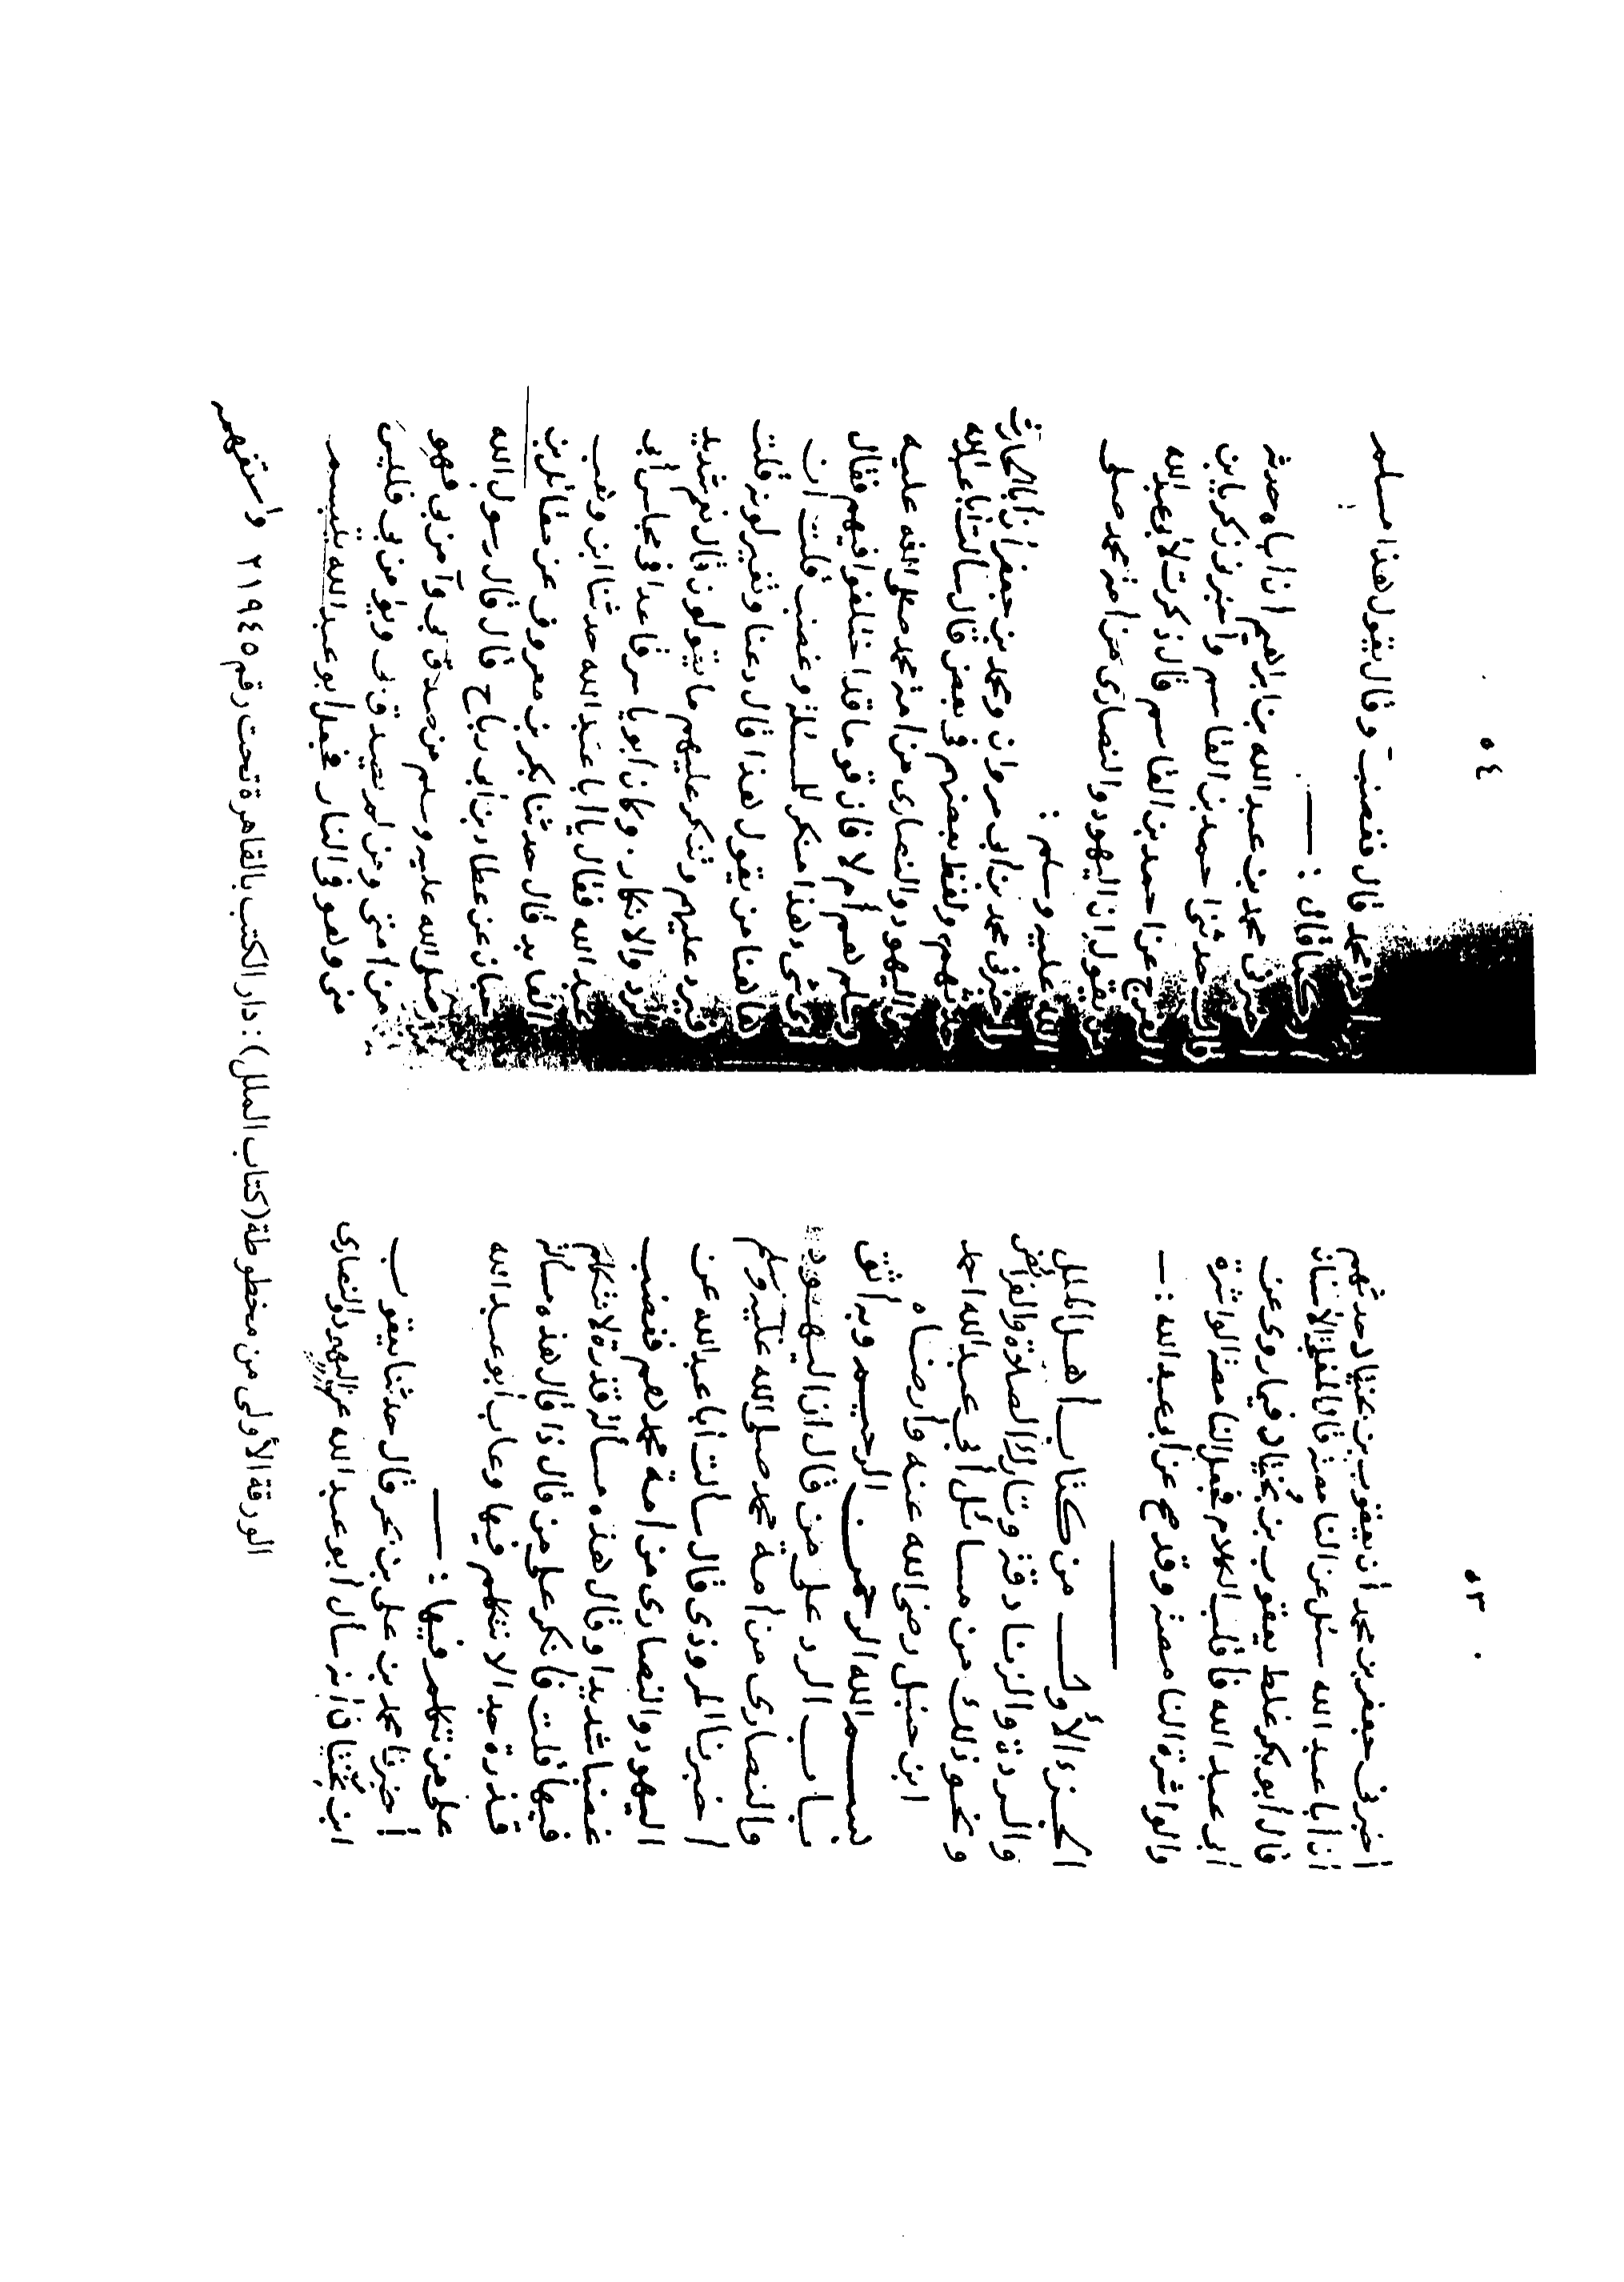 ٥٣
أخبرنى جعفر بن محمد أن يعقوب بن بختيار حدثهم
أن أبا عبد الله سئل عن النامصة قال المفلجة الأسنان
قال أبو بكر غلط يعقوب بن بختيار فيما روى عن
أبى عبد الله فأقلب الكلام فجعل النامصة الواشرة
والواشرة النامصة وقد صح عن أبى عبد الله :ـ
الجزء الأول من كتاب أهل الملل
والردة والزنادقة وتارك الصلاة والفرائض
ونحو ذلك من مسائل أبى عبد الله احمد
ابن حنبل رضى الله عنه وأرضاه
بسم الله الرحمن الرحيم وبه أثق
باب الرد على من قال ان اليهود
والنصارى من أمة محمد صلى الله عليه وسلم
أخبرنا المروذى قال سألت أبا عبد الله عن
اليهود والنصارى من امة محمد هم فغضب
غضبا شديدا وقال هذه مسألة قذرة لا تتكلم
فيها قلت فأنكر على من قال ذا قال هذه مسألة
قذرة جدا لا تتكلم فيها وعاب أبو عبد الله
على من تكلم فيها :ـ
أخبرنا محمد بن على بن بحر قال حدثنا يعقوب
ابن بختيار أنه سأل أبو عبد الله عن اليهود والنصارى
٥٤
امة محمد قال فغضب وقال يقول هذا مسلم
أو كما قال :ـ
محمد بن عبد الله بن ابراهيم أن أباه حدثه
قال حدثنى احمد بن القاسم وأخبرنى زكريا بن
الفرج عن احمد بن القاسم قال ذكرت لأبى عبد الله
من يقول ان اليهود والنصارى من امة محمد صلى
الله عليه وسلم :
أخبرنى محمد بن أبى مروان ومحمد بن جعفر أن أبا الحارث
حدثهم ولفظ بعضهم فى بعض قال سألت أبا عبد الله
اليهود والنصارى من امة محمد صلى الله عليه
وسلم هم أم لا فان قوما قد اختلفوا فيهم فقال
هذا منكر للمسئلة وغضب قلت ان
هاهنا من يقول هذا قال دعنا وتغير لونه قلت
فيرد عليهم وتنكر عليهم ما يقولون قال نعم شديد
الرد والانكار . وكان أبو ياسر قاعدا فى مجلس أبى
عبد الله فقال يا أبا عبد الله حدثنا ابن وهب
العابد قال حدثنا بكر بن معروف عن مقاتل بن
حيان عن عطاء بن أبى رباح قال قال رسول الله
صلى الله عليه وسلم من صدق بى وآمن بى فهو
من امتى ومن لم يصدق بى ويؤمن بى فليس
منى وهو فى النار فجعل أبو عبد الله يتبسم
واستفهمه
الورقة الأولى من مخطوطة (كتاب الملل) : دار الكتب بالقاهرة تحت رقم ٢١٩٤٥